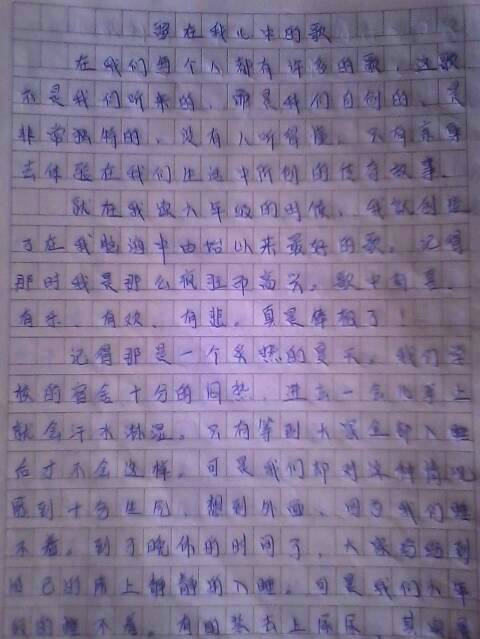 留在我心中的歌
在我们每个人都有许多的歌，这歌
不是我们听来的，而是我们自创的，是
非常独特的，没有人听得懂，只有亲身
去体验在我们生活中所创的传奇故事。
就在我读六年级的时候，我就创造
了在我脑海中由始以来最好的歌。记得
那时我是那么疯狂和高兴。歌中有喜、
有乐、有欢、有悲，真是棒极了！
记得那是一个炎热的夏天，我们学
校的宿舍十分的闷热，进去一会儿身上
就会汗水淋湿。只有等到大家全部入睡
后才不会这样。可是我们却对这种情况
感到十分生气，想到外面，因为我们睡
不着。到了晚休的时间了，大家都回到
自己的床上静静的入睡。可是我们六年
级的睡不着，有的装去上厕所